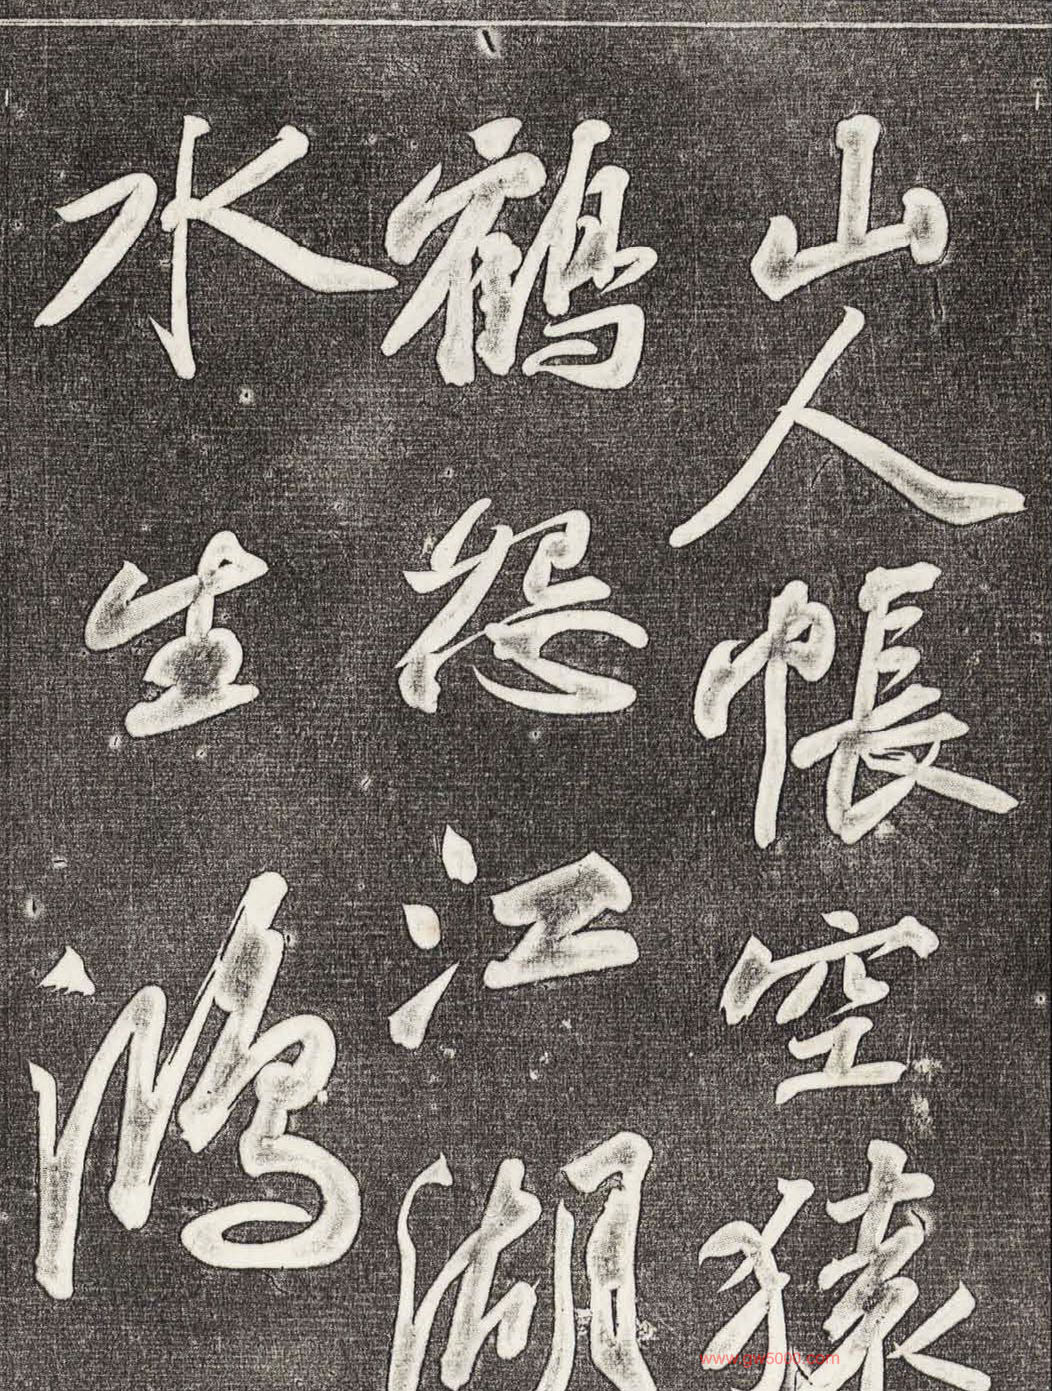 山人帳空猿
鶴怨江湖
水生鴻
www.gw5000.com